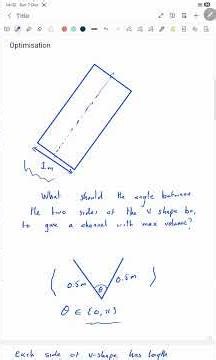 Title
Optimisation
1m
What should the angle between
the two sides of the V shape be,
to give a channel with max volume?
0.5m
θ
0.5m
θ ∈ (0, π)
Each side of v-shape has length